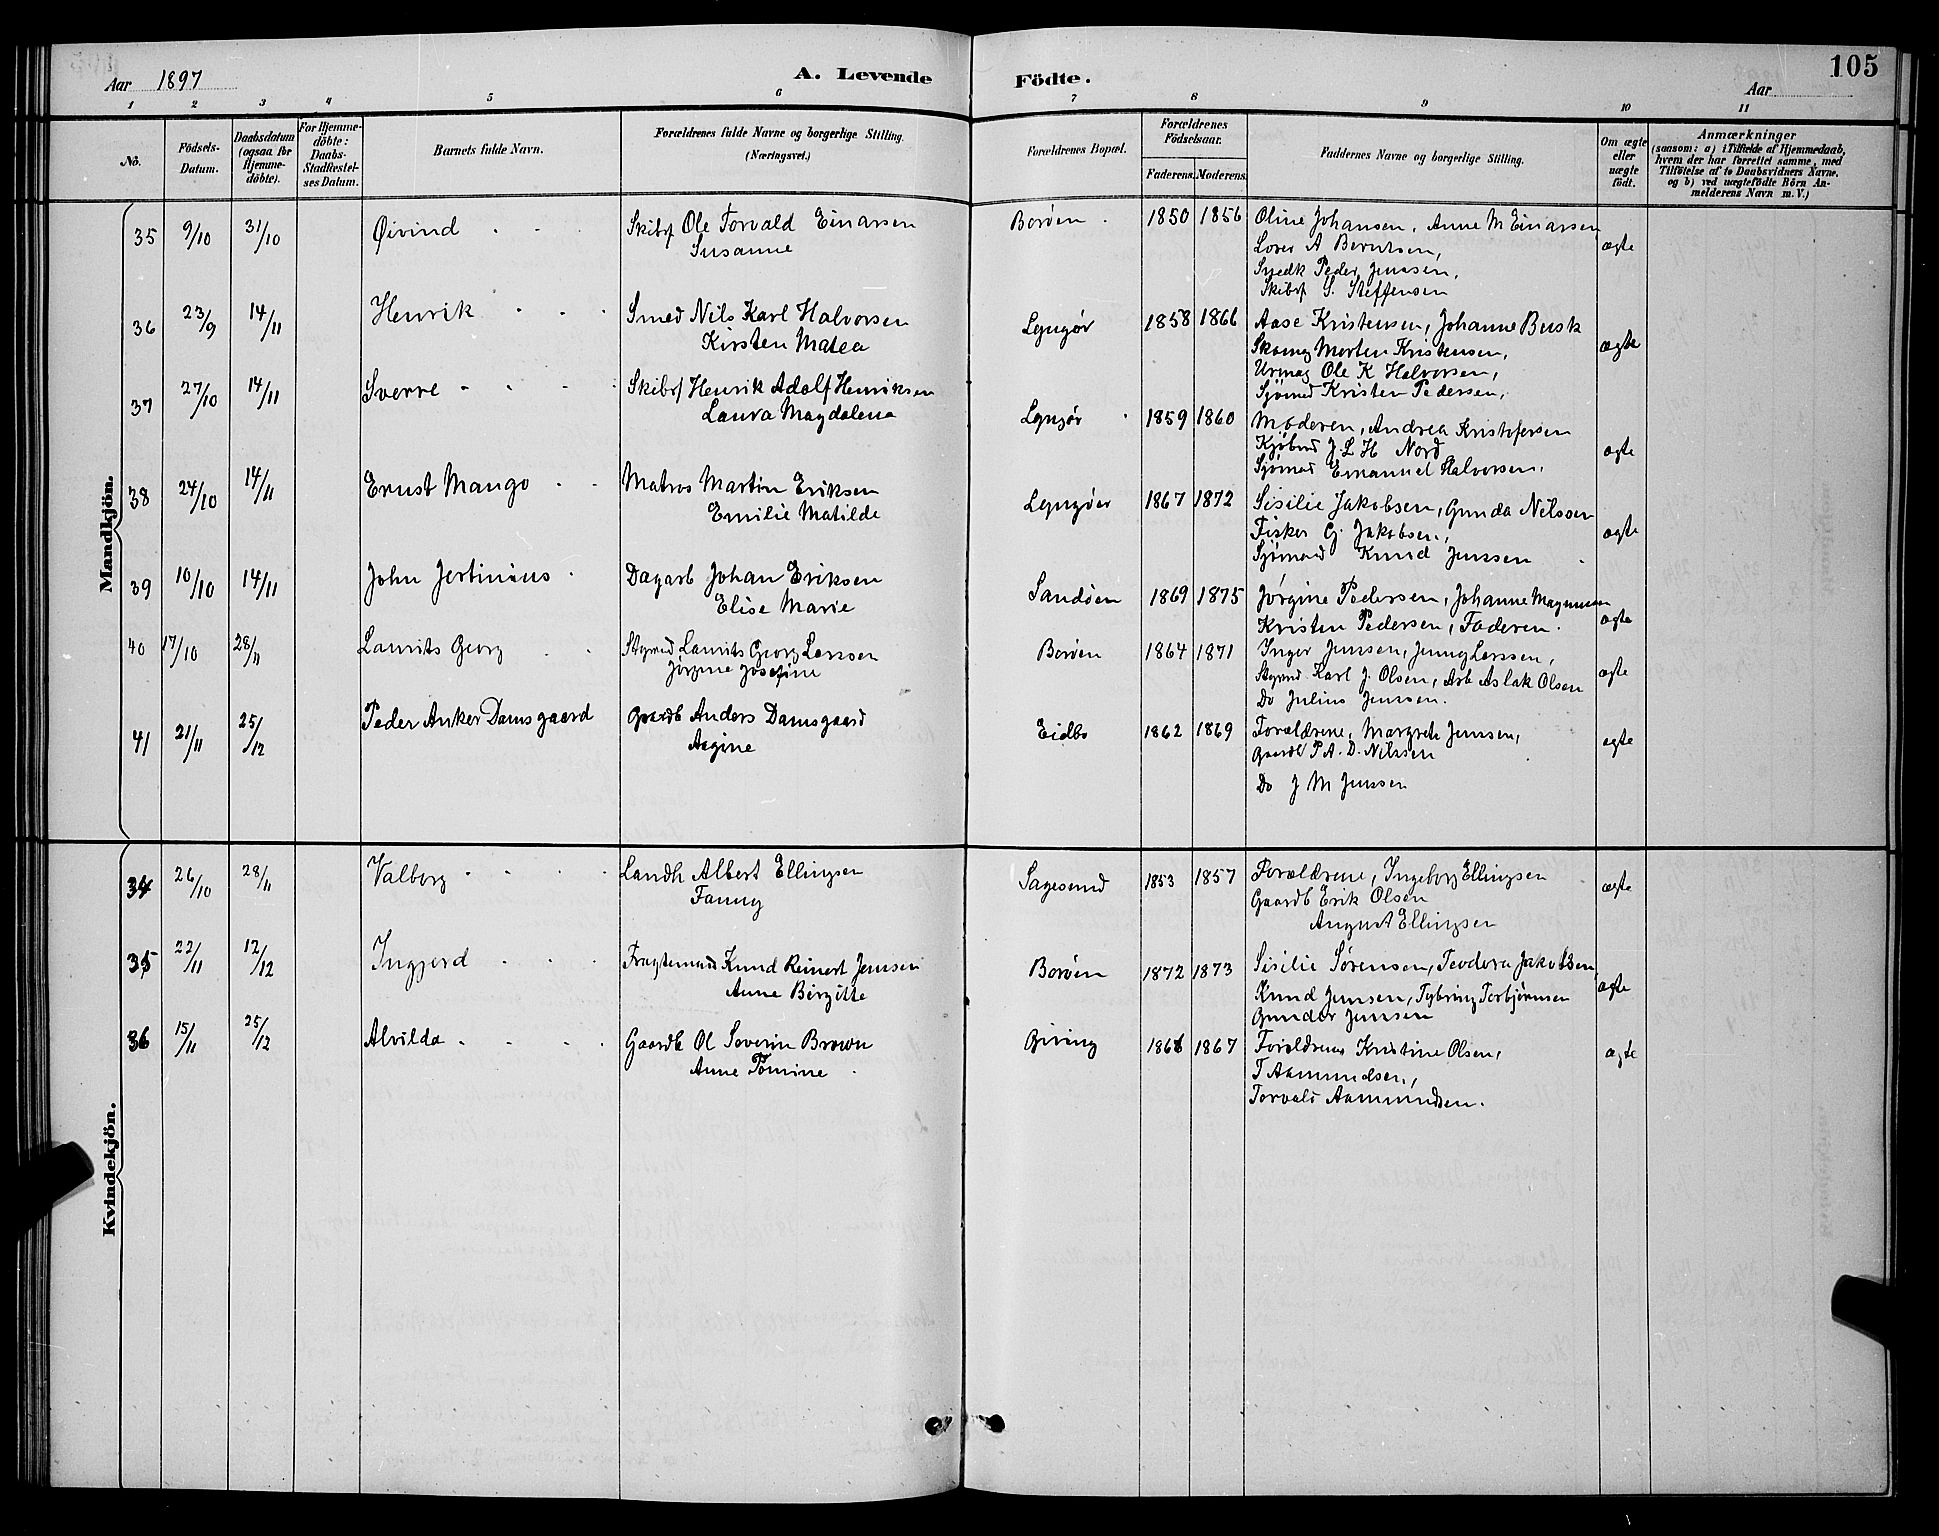 105
Aar 1897
A. Levende Födte.
Aar
1 2 3 4 5 6 7 8 9 10 11
No.
Födsels-
Datum.
Daabsdatum
(ogsaa for
Hjemme-
döbte).
For Hjemme-
döbte:
Daabs-
Stadfæstel-
ses Datum.
Barnets fulde Navn.
Forældrenes fulde Navne og borgerlige Stilling.
(Næringsvei.)
Forældrenes Bopæl.
Forældrenes
Födselsaar.
Faderens. Moderens.
Faddernes Navne og borgerlige Stilling.
Om ægte
eller
uægte
födt.
Anmærkninger
(saasom: a) i Tilfælde af Hjemmedaab,
hvem der har forrettet samme, med
Tilföielse af to Daabsvidners Navne,
og b) ved uægtefödte Börn An-
melderens Navn m. V.)
Mandkjön.
35 9/10 31/10 Øivind Skibsf Ole Torvald Einarsen Borøen 1850 1856 Oline Johansen, Anne M Einarsen ægte
Susanne
Lods A Berntsen,
Snedk Peder Jenssen,
Skibsf S. Steffensen
36 23/9 14/11 Henrik Smed Nils Karl Halvorsen Lyngør 1858 1866 Aase Kristensen, Johanne Busk ægte
Kirsten Matea
Skomag Morten Kristensen,
Urmag Ole K Halvorsen,
Sjømed Kristen Pedersen,
37 27/10 14/11 Sverre Skibsf Henrik Adolf Henriksen Lyngør 1859 1860 Moderen, Andrea Kristofersen ægte
Laura Magdalena
Kjøbmd J L H Nord
Sjømad Emanuel Halvorsen,
38 24/10 14/11 Ernst Mango Matros Martin Eriksen Lyngøer 1867 1872 Sisilie Jakobsen, Gunda Nilssen ægte
Emilie Matilde
Fisker Gj. Jakobsen,
Sjømand Knud Jenssen
39 10/10 14/11 John Jertinius Dagarb Johan Eriksen Sandøen 1869 1875 Jørgine Pedersen, Johanne Magnussen ægte
Elise Marie
Kristen Pedersen, Faderen.
40 17/10 28/11 Laurits Georg Stymd Laurits Georg Larssen Borøen 1864 1871 Inger Jenssen, Jenny Larssen, ægte
Jørgine Josefine
Stymd Karl J. Olsen, Arb Aslak Olsen
Do Julius Jenssen.
41 21/11 25/12 Peder Anker Damsgaard Gaardb Anders Damsgaard Eidbo 1862 1869 Forældrene, Margrete Jenssen, ægte
Aagine
Gaardb P A. D. Nilssen
Do J M Jenssen
Kvindekjön.
34 26/10 28/11 Valborg Landh Albert Ellingsen Sagesund 1853 1857 Forældrene, Ingeborg Ellingsen ægte
Fanny
Gaardb Erik Olsen
August Ellingsen
35 22/11 12/12 Ingjerd Fragtemand Knud Reinert Jenssen Borøen 1872 1873 Sisilie Sørensen, Teodora Jakobsen, ægte
Anne Birgitte
Knud Jenssen, Tybring Torbjørnsen
Gunder Jenssen
36 15/11 25/12 Alvilda Gaardb Ol Severin Brown Giving 1867 Forældrene Kristine Olsen, ægte
Anne Tomine
T Aamundsen,
Torvald Aamundsen.